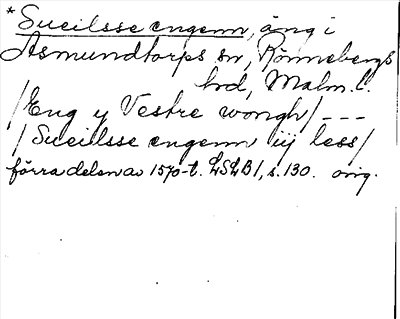 * Sueilsse engenn, äng i
Asmundtorps sn, Rönnebergs
hrd, Malm. l.
/Eng y Vestre wongh/ - - -
/Sueilsse engenn iij less/
förra delen av 1570-t. LSLB1, s. 130. orig.